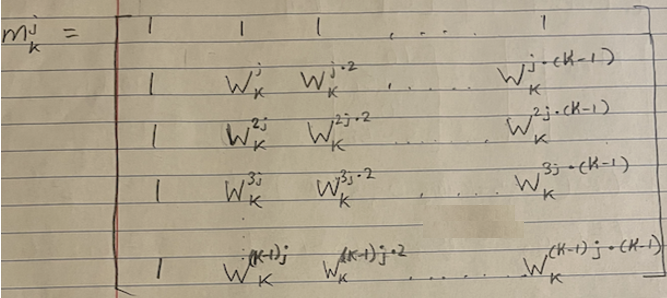 m_K^j = [ 1 1 1 . . . . 1
1 W_K^j W_K^{j·2} . . . . . W_K^{j·(K-1)}
1 W_K^{2j} W_K^{2j·2} . . . . . W_K^{2j·(K-1)}
1 W_K^{3j} W_K^{3j·2} . . . . W_K^{3j·(K-1)}
1 W_K^{(K-1)j} W_K^{(K-1)j·2} . . . . . W_K^{(K-1)j·(K-1)} ]